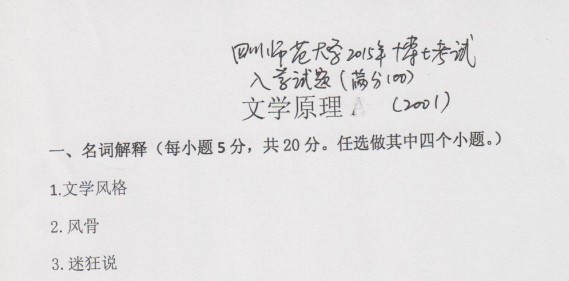 四川师范大学2015年博士考试
入学试题(满分100)
文学原理 A (2001)
一、名词解释（每小题5分，共20分。任选做其中四个小题。）
1.文学风格
2.风骨
3.迷狂说